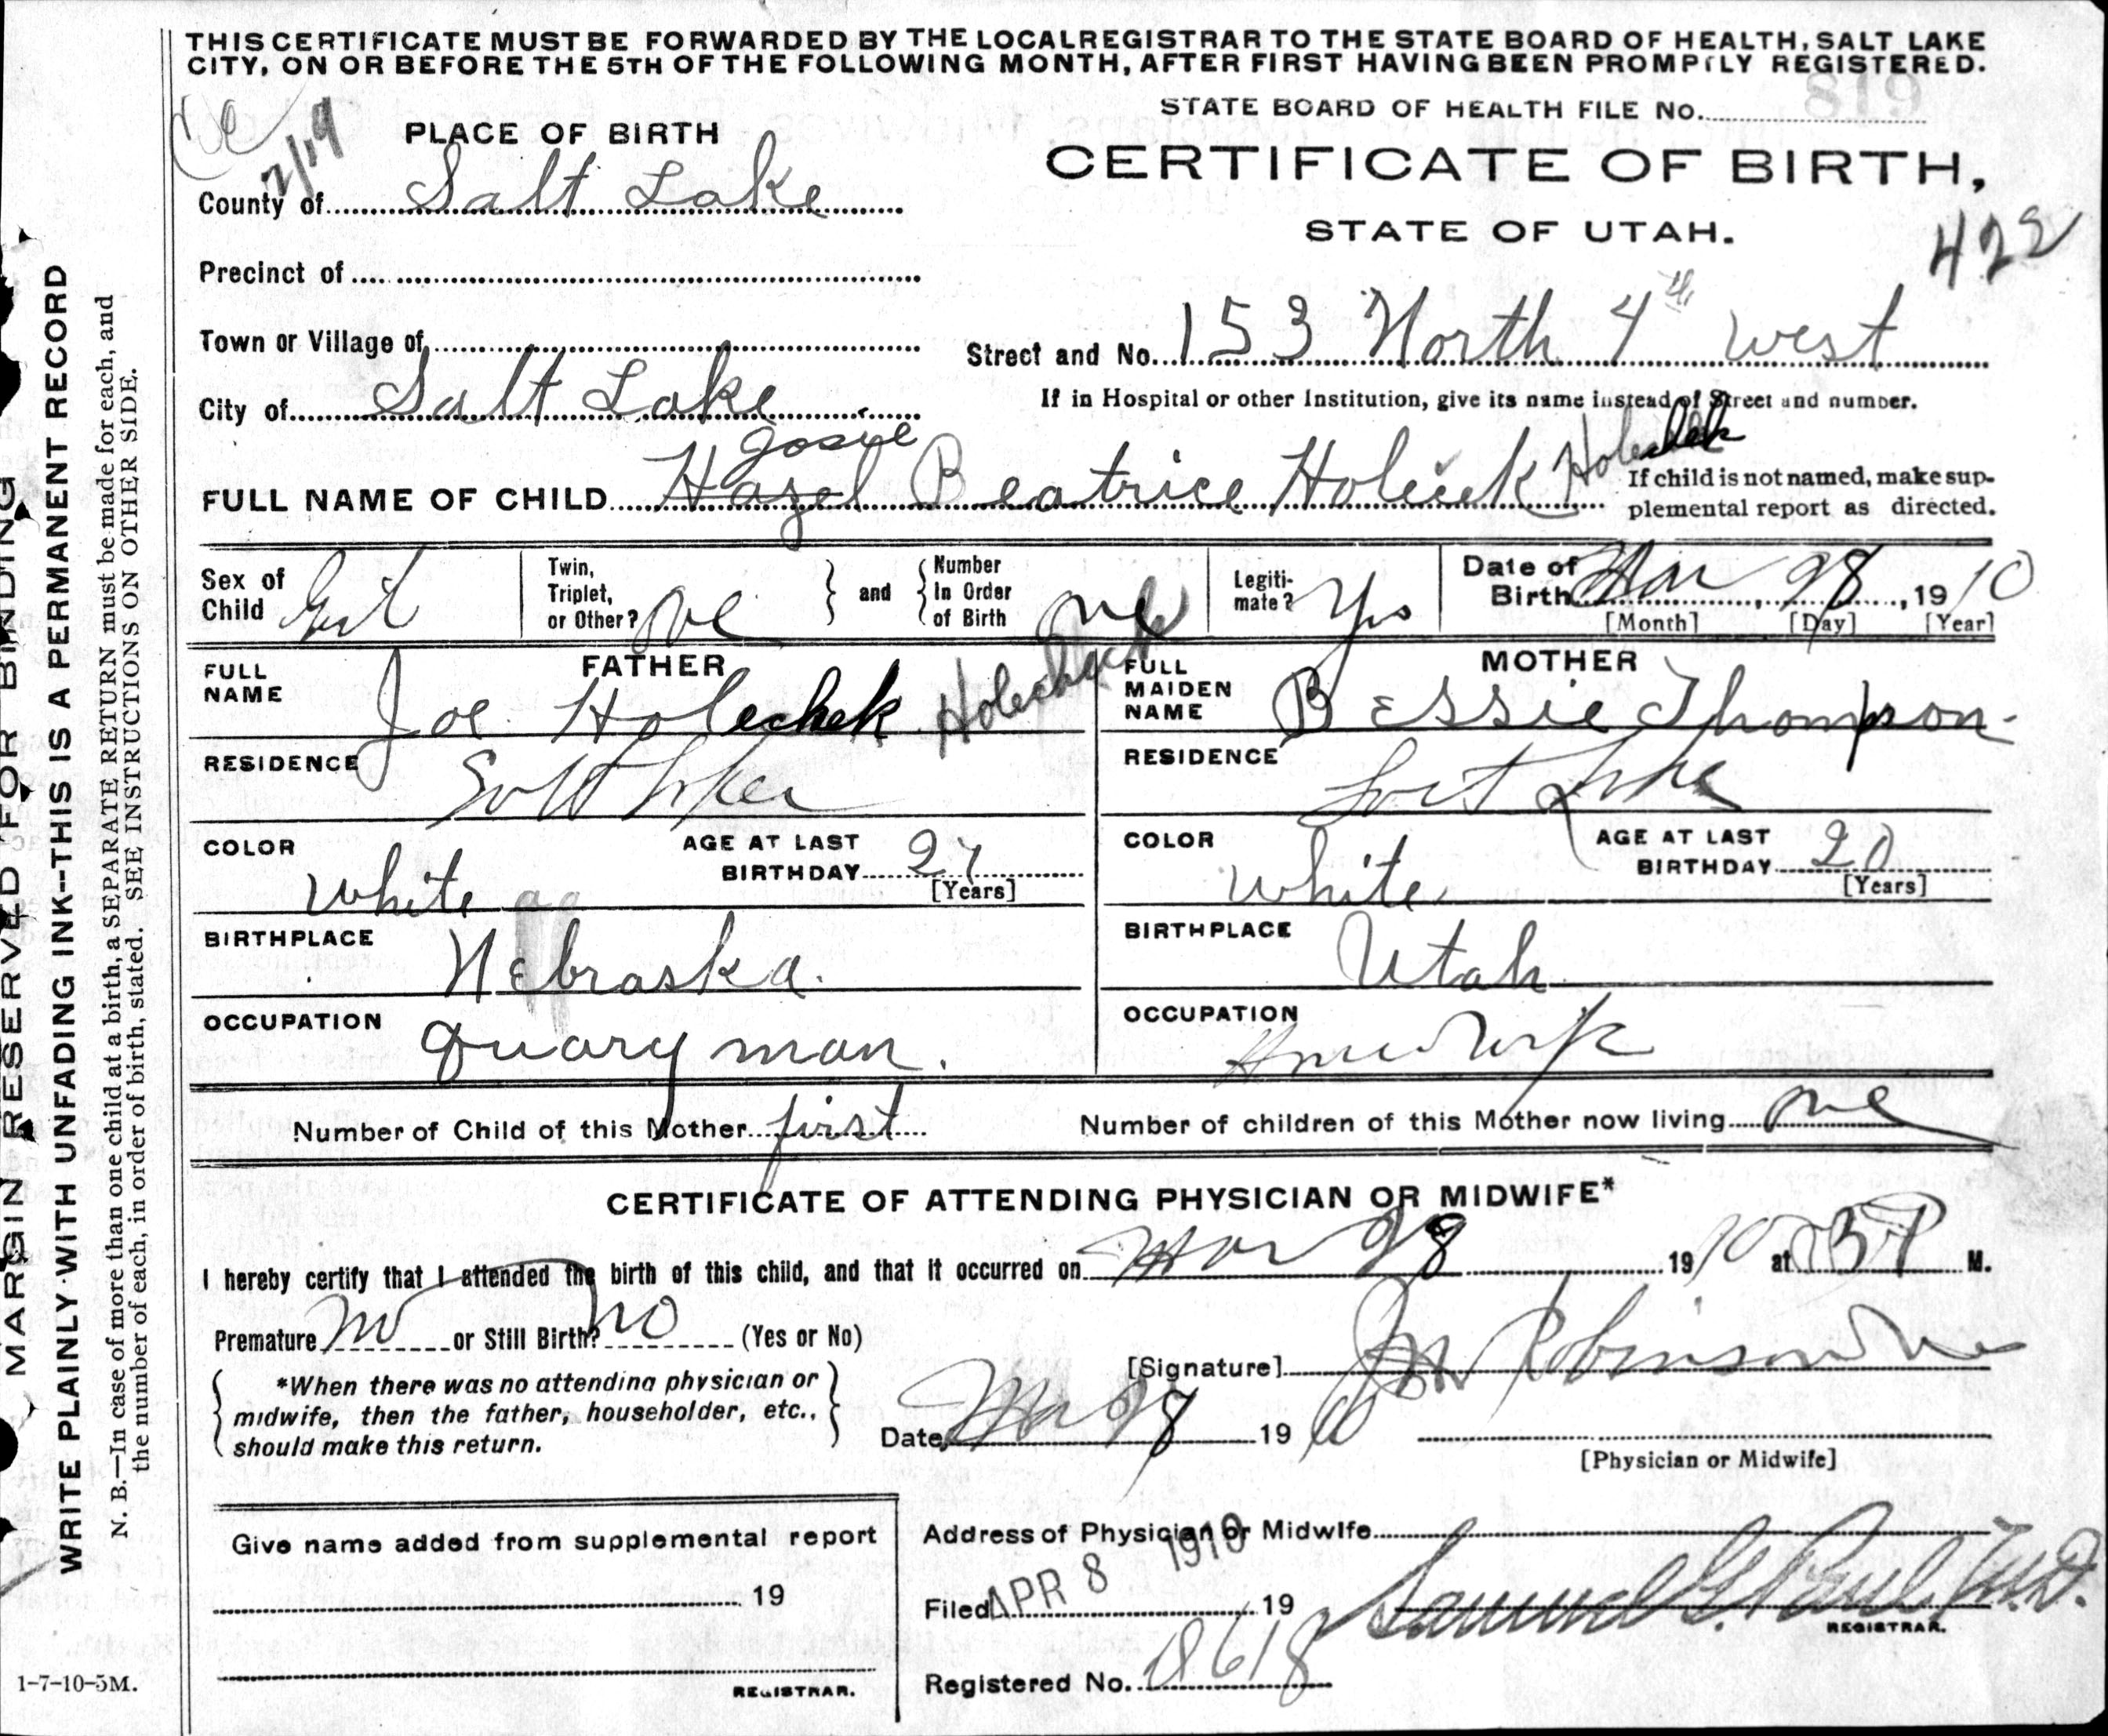 THIS CERTIFICATE MUST BE FORWARDED BY THE LOCAL REGISTRAR TO THE STATE BOARD OF HEALTH, SALT LAKE
CITY, ON OR BEFORE THE 5TH OF THE FOLLOWING MONTH, AFTER FIRST HAVING BEEN PROMPTLY REGISTERED.
STATE BOARD OF HEALTH FILE NO. 819
2/19
PLACE OF BIRTH
CERTIFICATE OF BIRTH,
County of Salt Lake
STATE OF UTAH.
422
Precinct of
Town or Village of
Street and No. 153 North 4th West
If in Hospital or other Institution, give its name instead of Street and number.
City of Salt Lake
Josie
Holechek
FULL NAME OF CHILD Hazel Beatrice Holecek
If child is not named, make sup-
plemental report as directed.
Sex of Child Girl
Twin, Triplet, or Other? one
and
Number In Order of Birth one
Legiti-mate? Yes
Date of Birth Mar 28, 1910
[Month] [Day] [Year]
FATHER
FULL NAME Joe Holechek
RESIDENCE Salt Lake
COLOR White
AGE AT LAST BIRTHDAY 27
[Years]
BIRTHPLACE Nebraska.
OCCUPATION Quary man.
MOTHER
FULL MAIDEN NAME Bessie Thompson
RESIDENCE Salt Lake
COLOR White
AGE AT LAST BIRTHDAY 20
[Years]
BIRTHPLACE Utah
OCCUPATION Housewife
Number of Child of this Mother first
Number of children of this Mother now living one
CERTIFICATE OF ATTENDING PHYSICIAN OR MIDWIFE*
I hereby certify that I attended the birth of this child, and that it occurred on Mar 28 1910 at P M.
Premature no or Still Birth? no (Yes or No)
[Signature] Robinson
*When there was no attending physician or
midwife, then the father, householder, etc.,
should make this return.
Date Mar 28 1910
[Physician or Midwife]
Give name added from supplemental report
19
REGISTRAR.
Address of Physician or Midwife
Filed APR 8 1910 19
Samuel G. Paul M.D.
REGISTRAR.
Registered No. 18618
1-7-10-5M.
MARGIN RESERVED FOR BINDING
WRITE PLAINLY WITH UNFADING INK--THIS IS A PERMANENT RECORD
N. B.—In case of more than one child at a birth, a SEPARATE RETURN must be made for each, and
the number of each, in order of birth, stated. SEE INSTRUCTIONS ON OTHER SIDE.